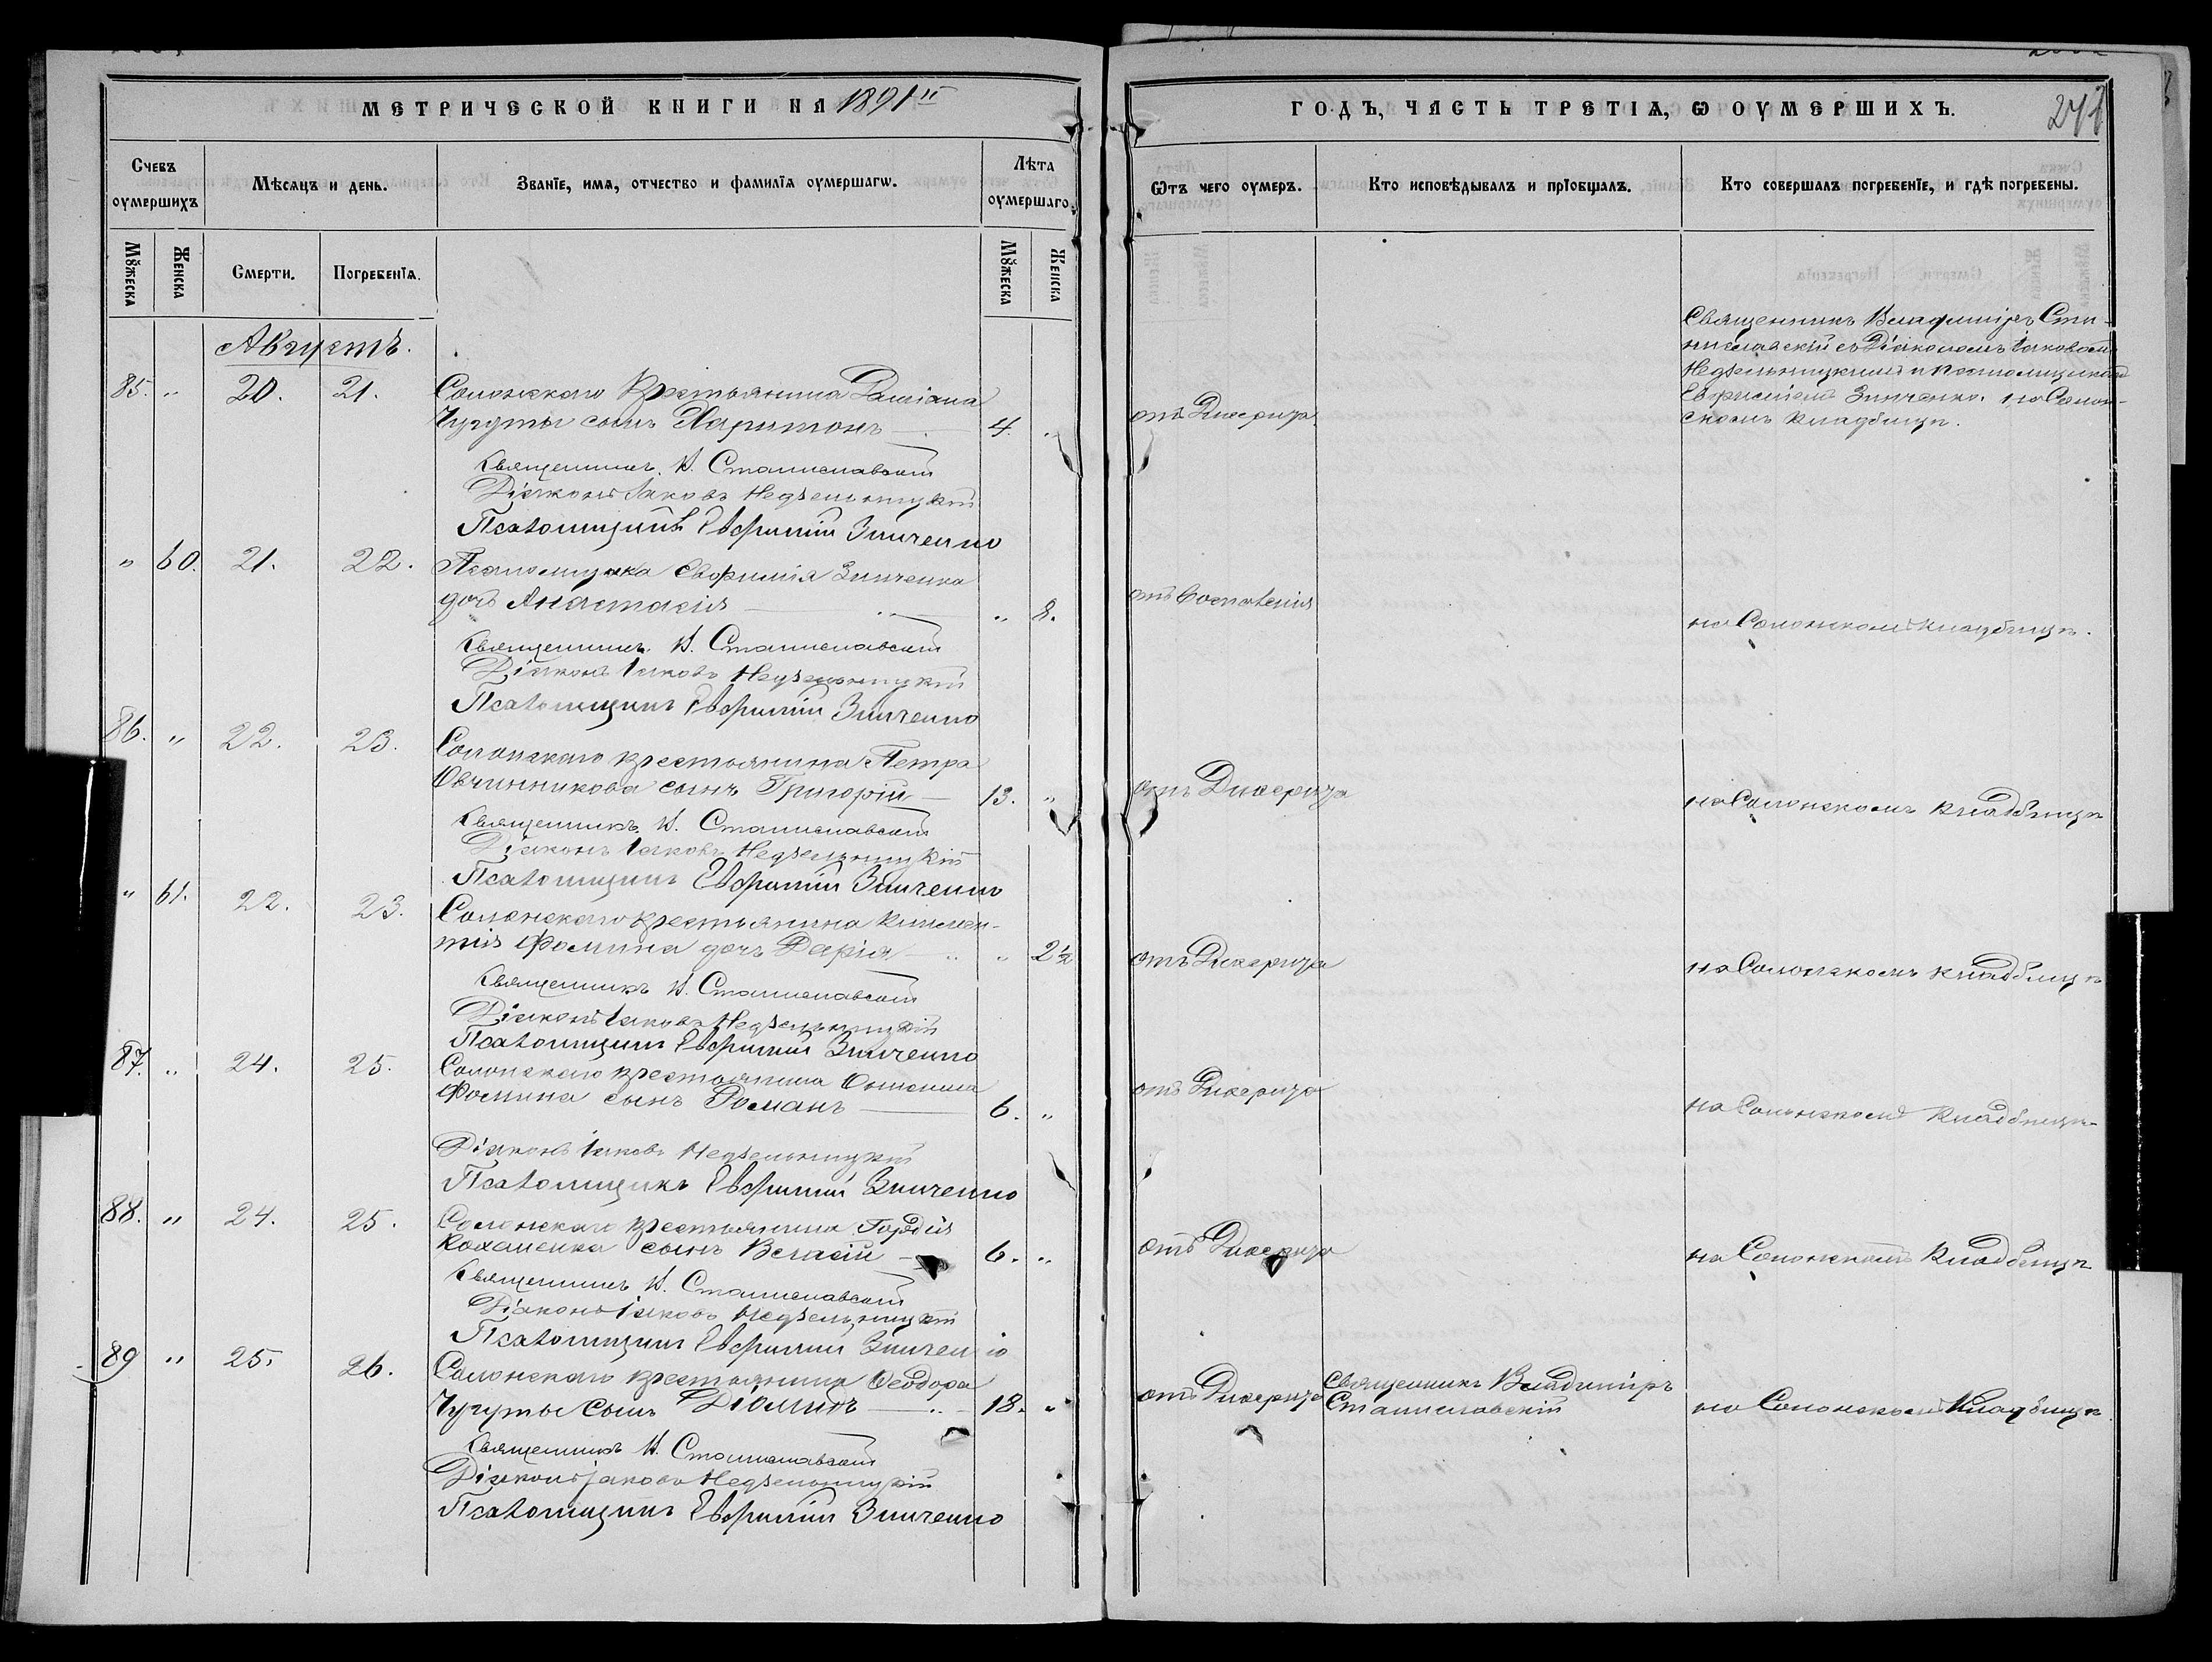 МЕТРИЧЕСКОЙ КНИГИ НА 1891й
ГОДЪ, ЧАСТЬ ТРЕТІѦ, Ѡ ОУМЕРШИХЪ.
Счевъ оумершихъ
Мѣсѧцъ и день.
Званїе, имѧ, отчество и фамилїѧ оумершагѡ.
Лѣта оумершаго.
Ѿтъ чего оумеръ.
Кто исповѣдывалъ и прїобщалъ.
Кто совершалъ погребенїе, и гдѣ погребены.
Мꙋжеска
Женска
Смерти.
Погребенїѧ.
Мꙋжеска
Женска
Августъ.
Священникъ Владиміръ Ста-
ниславскій съ Діакономъ Іаковомъ
Недѣльницкимъ и псаломщикомъ
Евфиміемъ Зинченко. на Солон-
скомъ кладбищѣ.
85. " 20. 21. Солонскаго крестьянина Даміана
Чугуты сынъ Харитонъ 4. " отъ Дисентр.
Священникъ В. Станиславскій
Діаконъ Іаковъ Недѣльницкій
Псаломщикъ Евфимій Зинченко
" 60. 21. 22. Псаломщика Евфимія Зинченка
дочь Анастасія " 8. отъ воспаленія на Солонскомъ кладбищѣ.
Священникъ В. Станиславскій
Діаконъ Іаковъ Недѣльницкій
Псаломщикъ Евфимій Зинченко
86. " 22. 23. Солонскаго крестьянина Петра
Овчинникова сынъ Григорій 13. " отъ на Солонскомъ кладбищѣ
Священникъ В. Станиславскій
Діаконъ Іаковъ Недѣльницкій
Псаломщикъ Евфимій Зинченко
" 61. 22. 23. Солонскаго крестьянина Климен-
тія Фомина дочь Дарія " 2½ отъ на Солонскомъ кладбищѣ
Священникъ В. Станиславскій
Діаконъ Іаковъ Недѣльницкій
Псаломщикъ Евфимій Зинченко
87. " 24. 25. Солонскаго крестьянина
Фомина сынъ Романъ 6. " отъ на Солонскомъ кладбищѣ
Діаконъ Іаковъ Недѣльницкій
Псаломщикъ Евфимій Зинченко
88. " 24. 25. Солонскаго крестьянина Гордія
Коханенка сынъ 6. " отъ на Солонскомъ кладбищѣ
Священникъ В. Станиславскій
Діаконъ Іаковъ Недѣльницкій
Псаломщикъ Евфимій Зинченко
89 " 25. 26. Солонскаго крестьянина Ѳеодора
Чугуты сынъ Діомидъ 18. " отъ Священникъ Владиміръ
Станиславскій на Солонскомъ кладбищѣ
Священникъ В. Станиславскій
Діаконъ Іаковъ Недѣльницкій
Псаломщикъ Евфимій Зинченко